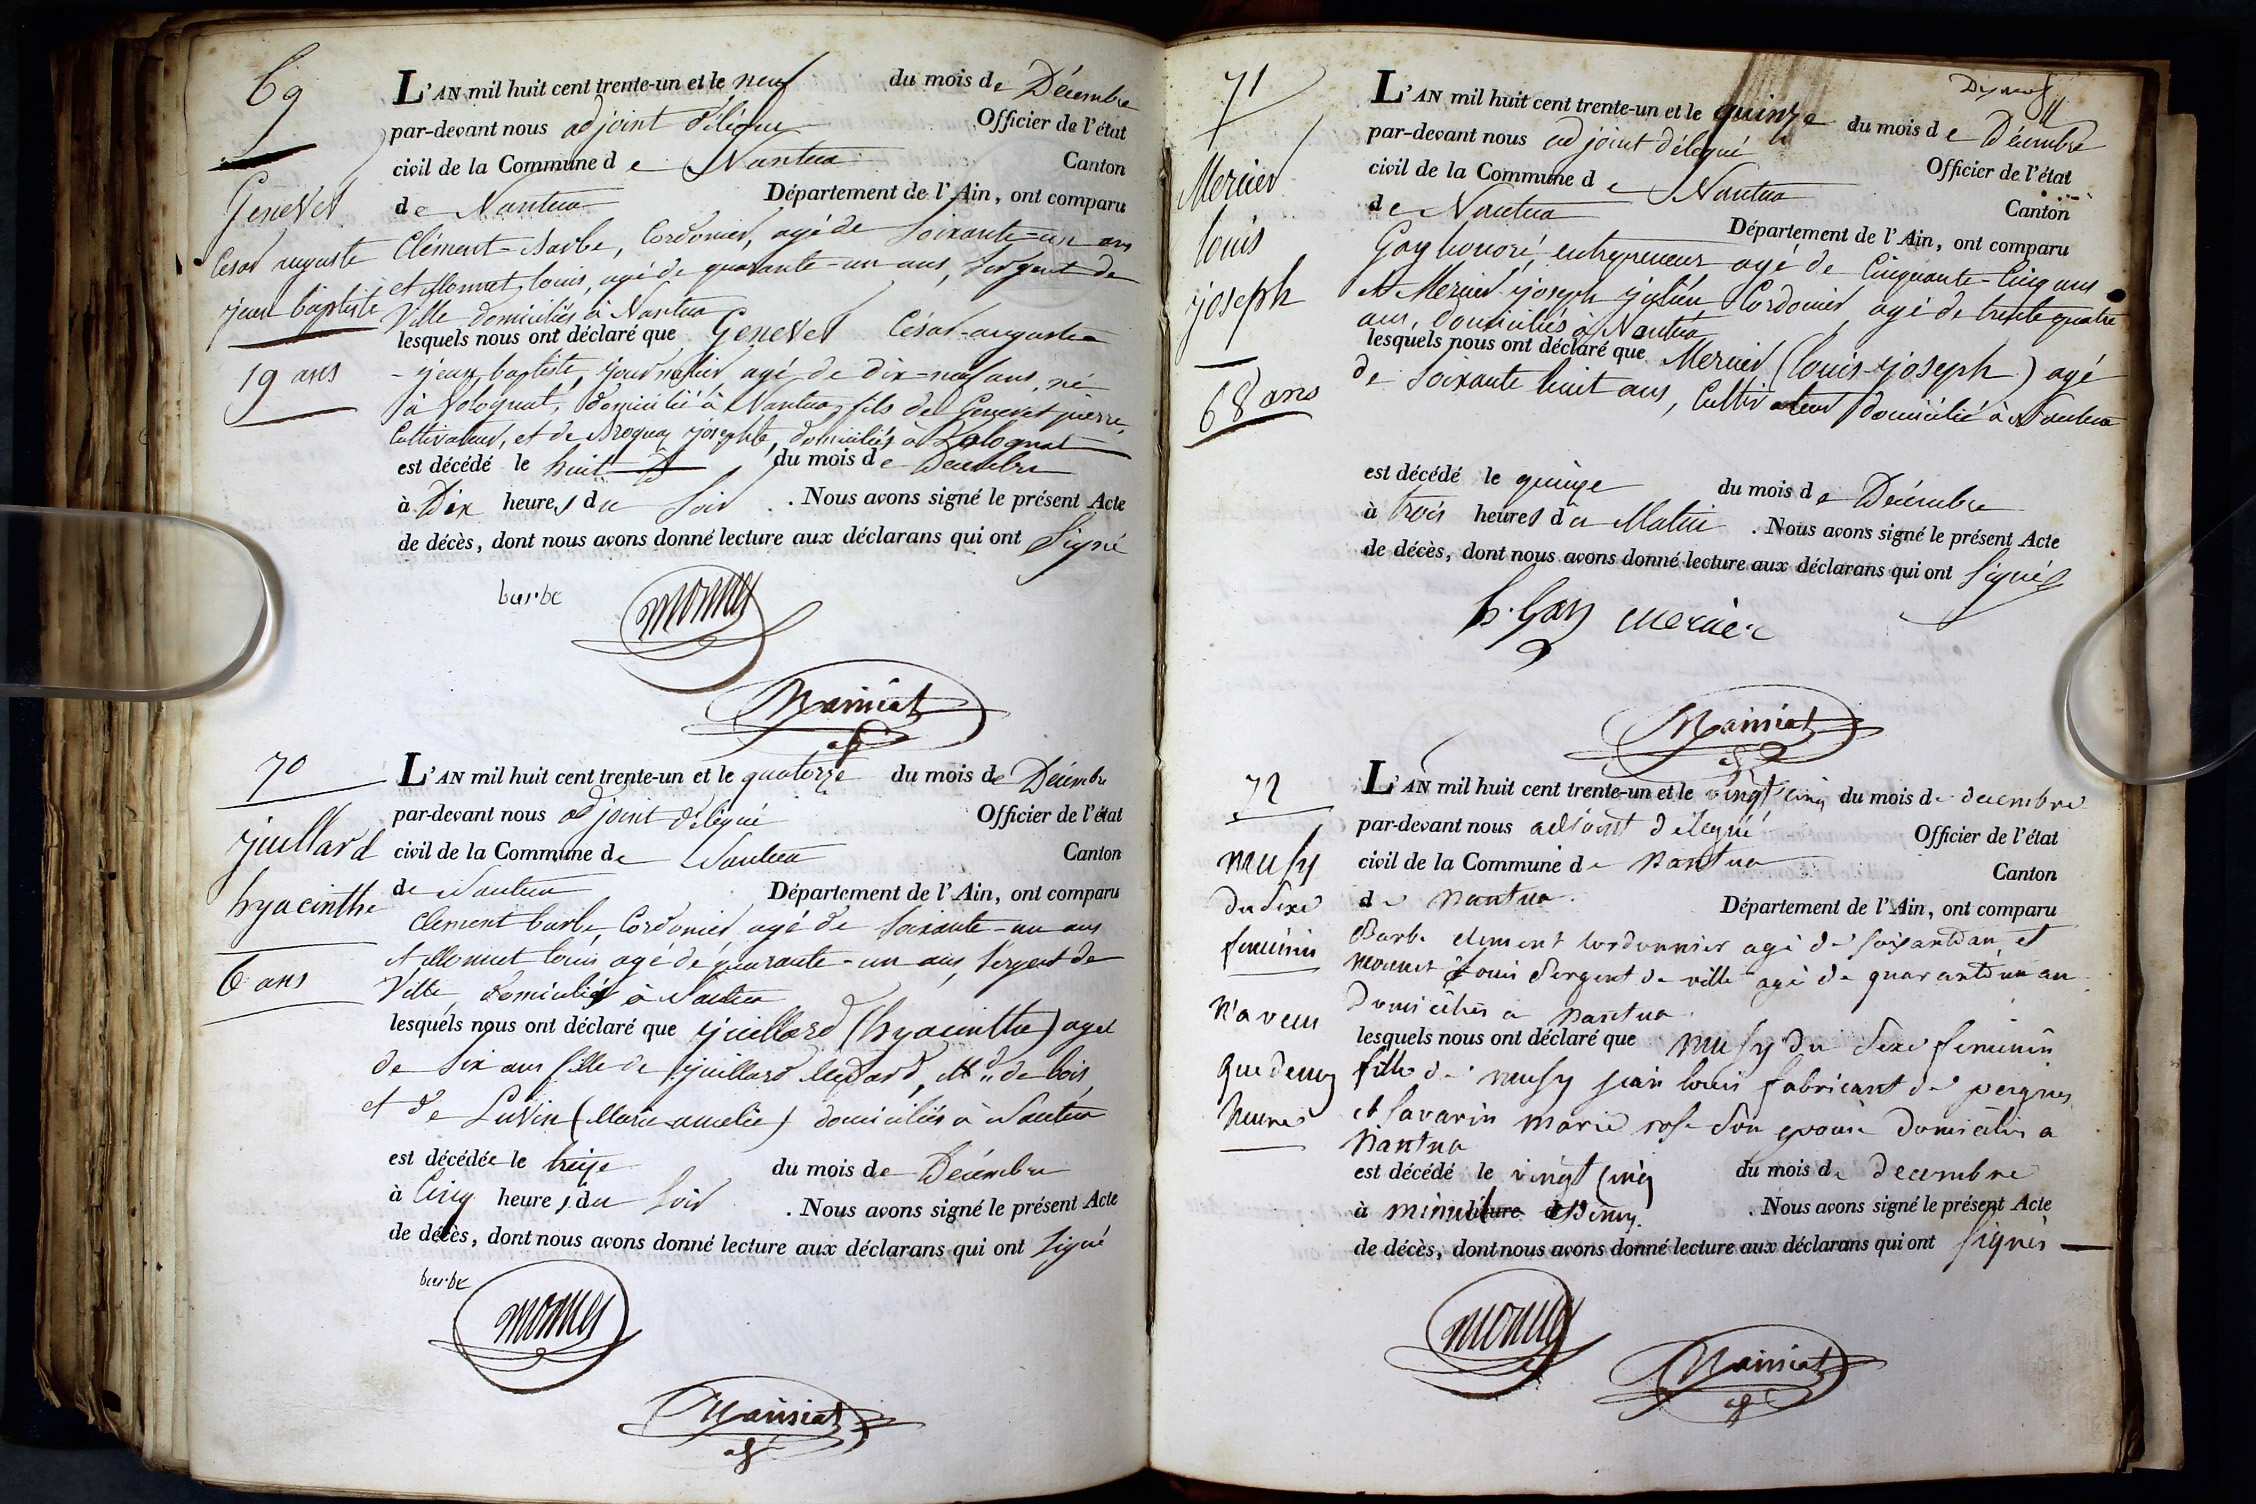 69
Genevet
Cesar auguste
jean baptiste
19 ans
L'AN mil huit cent trente-un et le neuf du mois de Décembre
par-devant nous adjoint délégué Officier de l'état
civil de la Commune de Nantua Canton
de Nantua Département de l'Ain, ont comparu
Clément Barbe, Cordonier, agé de Soixante-un ans
et Monnet, louis, agé de quarante-un ans, Sergent de
Ville domiciliés à Nantua
lesquels nous ont déclaré que Genevet César-auguste
-jean baptiste, journalier agé de dix-neuf ans, né
à Volognat, domicilié à Nantua, fils de Genevet pierre,
Cultivateur, et de josephte, domiciliés à Volognat
est décédé le huit du mois de Décembre
à Dix heures du Soir . Nous avons signé le présent Acte
de décès, dont nous avons donné lecture aux déclarans qui ont Signé
barbe monnet
Mainiat
70
juillard
hyacinthe
6 ans
L'AN mil huit cent trente-un et le quatorze du mois de Décembre
par-devant nous adjoint délégué Officier de l'état
civil de la Commune de Nantua Canton
de Nantua Département de l'Ain, ont comparu
Clement barbe, Cordonier, agé de Soixante-un ans
et Monnet louis agé de quarante-un ans, Sergent de
Ville, domiciliés à Nantua
lesquels nous ont déclaré que juillard (hyacinthe) agée
de Six ans fille de juillard , Md. de bois
et de Luvin (Marie amelie) domiciliés à Nantua
est décédée le treize du mois de Décembre
à Cinq heures du Soir . Nous avons signé le présent Acte
de décès, dont nous avons donné lecture aux déclarans qui ont Signé
barbe
monnet
Mainiat
71
Mercier
louis
joseph
68 ans
L'AN mil huit cent trente-un et le quinze du mois de Décembre
par-devant nous adjoint délégué Officier de l'état
civil de la Commune de Nantua Canton
de Nantua Département de l'Ain, ont comparu
Gay honoré, entrepreneur agé de Cinquante-Cinq ans
et Mercier joseph julien Cordonier, agé de trente quatre
ans, domiciliés à Nantua
lesquels nous ont déclaré que Mercier (louis-joseph) agé
de Soixante huit ans, Cultivateur domicilié à Nantua
est décédé le quinze du mois de Décembre
à trois heures du Matin . Nous avons signé le présent Acte
de décès, dont nous avons donné lecture aux déclarans qui ont Signé
h. Gay mercier
Mainiat
72
musy
du Sexe
feminin
n'a vecu
que demy
heure
L'AN mil huit cent trente-un et le vingt cinq du mois de decembre
par-devant nous adjoint délégué Officier de l'état
civil de la Commune de nantua Canton
de nantua. Département de l'Ain, ont comparu
Barbe clement cordonnier agé de soixantdun et
monnet Louis Sergent de ville agé de quarantdun an
domicilies a nantua
lesquels nous ont déclaré que musy du Sexe feminin
fille de musy jean louis fabricant de peignes
et savarin marie rose Son epouse domicilies a
nantua
est décédé le vingt cinq du mois de decembre
à minuit heure d demy. . Nous avons signé le présent Acte
de décès, dont nous avons donné lecture aux déclarans qui ont signés
monnet
Mainiat